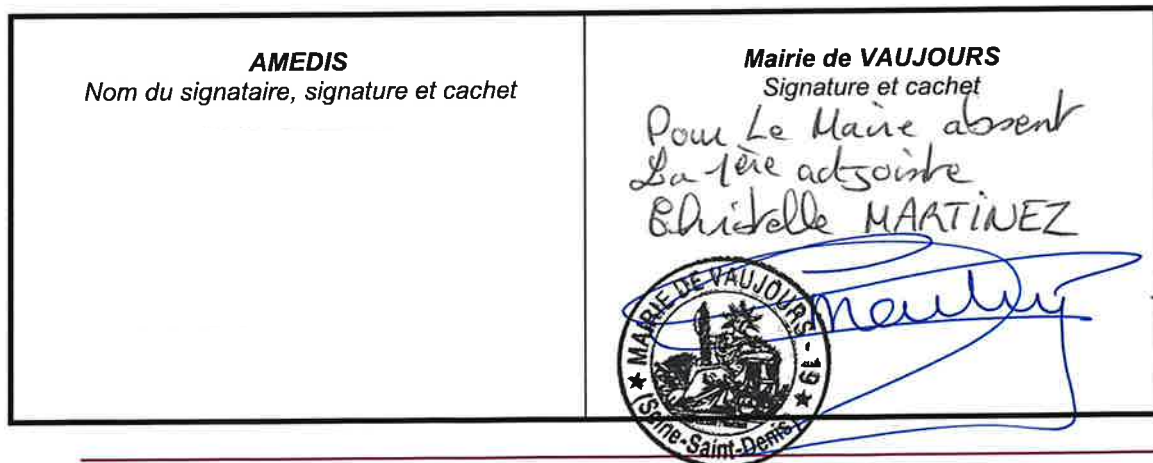 AMEDIS
Nom du signataire, signature et cachet
Mairie de VAUJOURS
Signature et cachet
Pour Le Maire absent
La 1ère adjointe
Christelle MARTINEZ
★ MAIRIE DE VAUJOURS - 19 ★
(Seine-Saint-Denis)